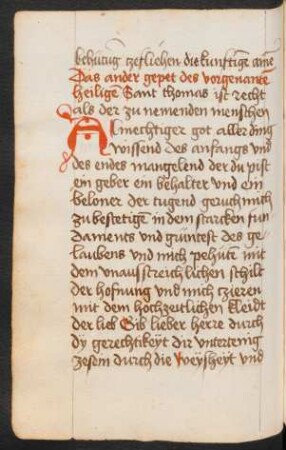 behütūg czeitlichen die kunftigē amē
Das ander gepet des vorgenantē
heiligē Sant thomas ist recht
als der zu nemenden menschen
Almechtiger got aller ding
wissend des anfangs vnd
des endes mangelend der du pist
ein geber ein behalter vnd ein
beloner der tugend geruch mich
zu bestetigē in dem starcken fun
daments vnd grüntest des ge-
laubens vnd mich pehüte mit
dem vnausstreichlichen schilt
der hofnung vnd mich czieren
mit dem hochzeitlichen kleidt
der lieb Gib lieber herre durch
dy gerechtikeyt dir vntertenig
zesein durch die weysheyt vnd